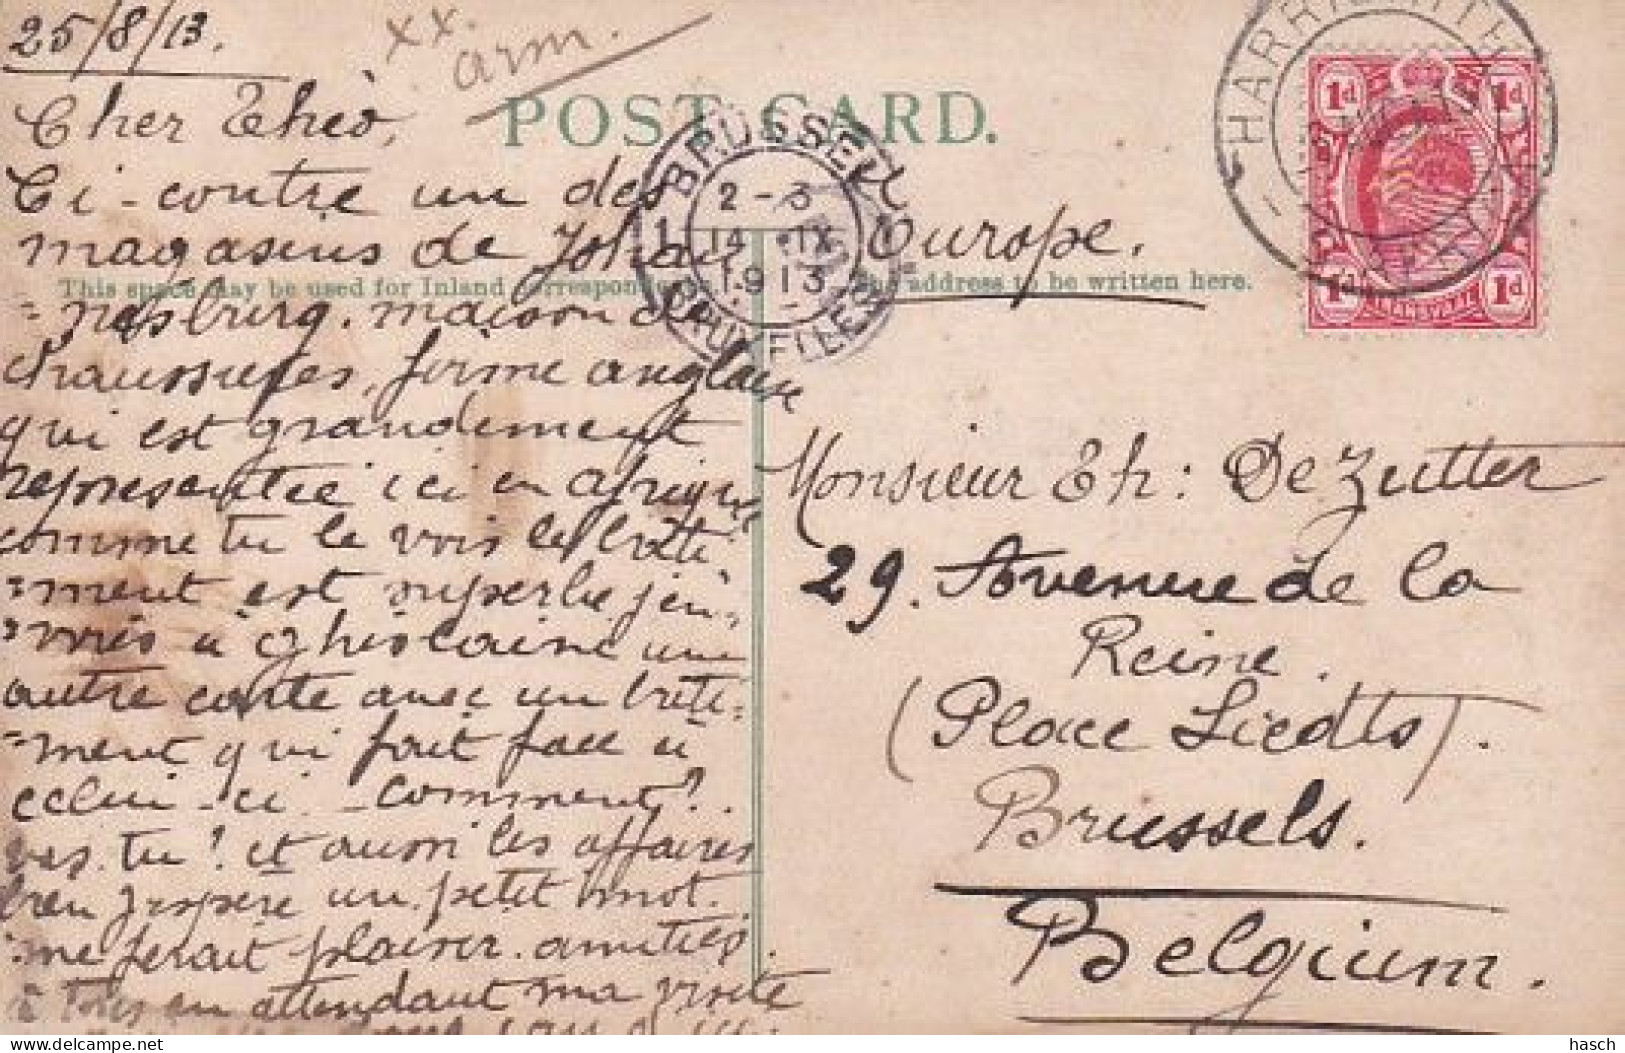 25/8/13.
xx. arm.
Cher Théo,
POST CARD.
Ci-contre un des
magasins de Johan
This space may be used for Inland Correspondence.
The address to be written here.
=nesburg. maison de
chaussures, forme anglaise
qui est grandement
représentée ici en afrique
comme tu le vois le bâti
=ment est superbe j'en=
=vois à Ghislaine une
autre carte avec un bâti=
=ment qui fait face à
celui-ci - comment?
vas-tu? et aussi les affaires
bien j'espère un petit mot.
me ferait plaisir. amitiés
à tous en attendant ma visite
BRUSSEL
1
2-3
14 IX
1913
BRUXELLES
Europe.
HARRISMITH
1d 1d
TRANSVAAL
1d 1d
Monsieur Th: De Zutter
29. Avenue de la
Reine.
(Place Liedts).
Brussels.
Belgium.
hasch